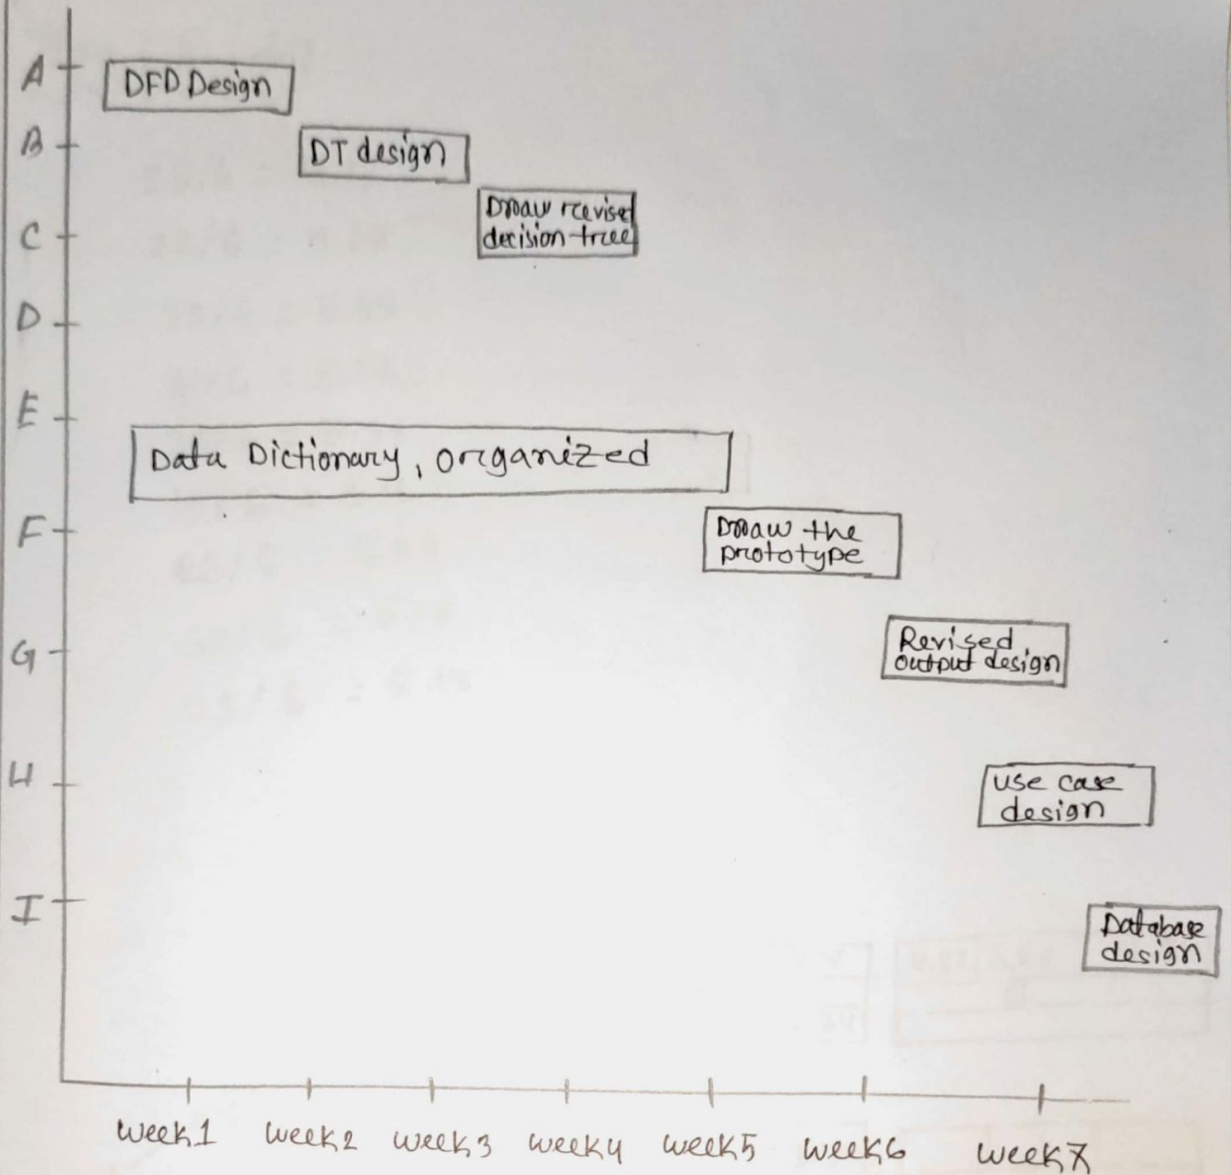 A
DFD Design
B
DT design
C
Draw revised
decision tree
D
E
Data Dictionary, organized
F
Draw the
prototype
G
Revised
output design
H
use case
design
I
Database
design
week1 week2 week3 week4 week5 week6 week7